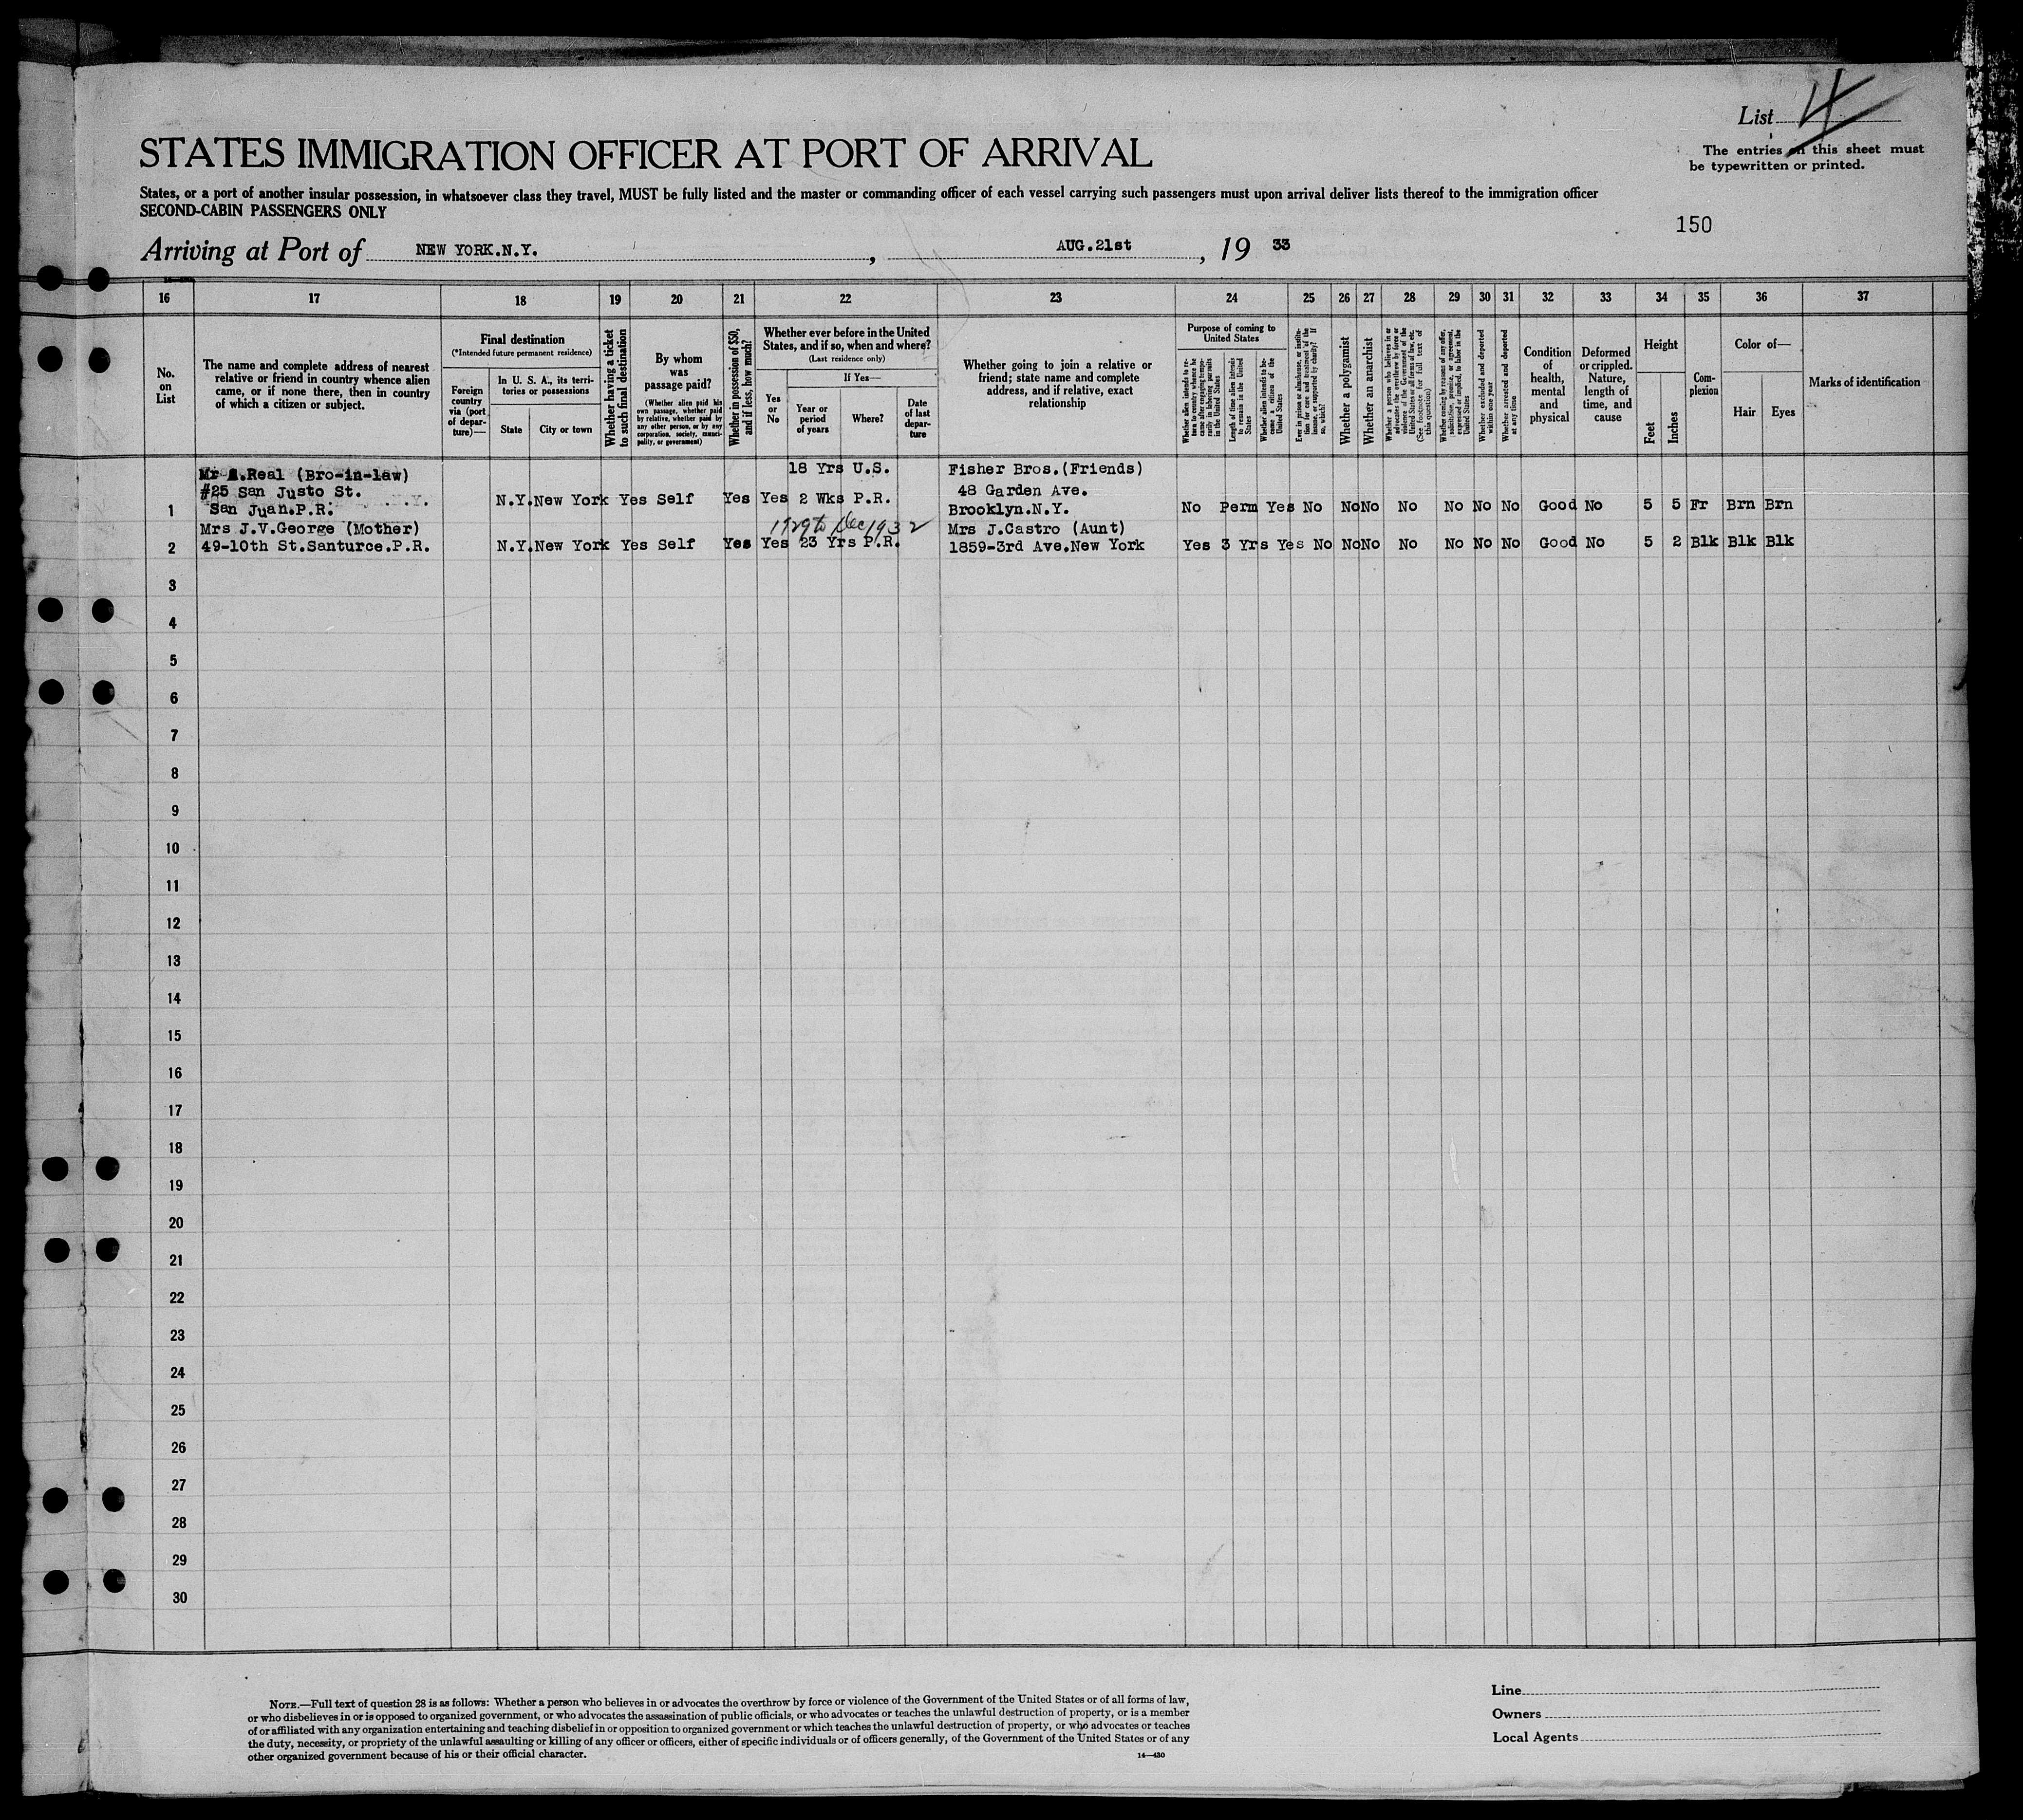 List 4
The entries on this sheet must
be typewritten or printed.
STATES IMMIGRATION OFFICER AT PORT OF ARRIVAL
States, or a port of another insular possession, in whatsoever class they travel, MUST be fully listed and the master or commanding officer of each vessel carrying such passengers must upon arrival deliver lists thereof to the immigration officer
SECOND-CABIN PASSENGERS ONLY
150
Arriving at Port of NEW YORK.N.Y. , AUG.21st , 19 33
16 17 18 19 20 21 22 23 24 25 26 27 28 29 30 31 32 33 34 35 36 37
No.
on
List
The name and complete address of nearest
relative or friend in country whence alien
came, or if none there, then in country
of which a citizen or subject.
Final destination
(*Intended future permanent residence)
Foreign
country
via (port
of depar-
ture)—
In U. S. A., its terri-
tories or possessions
State
City or town
Whether having a ticket
to such final destination
By whom
was
passage paid?
(Whether alien paid his
own passage, whether paid
by relative, whether paid by
any other person, or by any
corporation, society, munici-
pality, or government)
Whether in possession of $50,
and if less, how much?
Whether ever before in the United
States, and if so, when and where?
(Last residence only)
Yes
or
No
If Yes—
Year or
period
of years
Where?
Date
of last
depar-
ture
Whether going to join a relative or
friend; state name and complete
address, and if relative, exact
relationship
Purpose of coming to
United States
Whether alien intends to re-
turn to country whence he
came after engaging tempo-
rarily in laboring pursuits
in the United States
Length of time alien intends
to remain in the United
States
Whether alien intends to be-
come a citizen of the
United States
Ever in prison or almshouse, or institu-
tion for care and treatment of the
insane, or supported by charity? If
so, which?
Whether a polygamist
Whether an anarchist
Whether a person who believes in or
advocates the overthrow by force or
violence of the Government of the
United States or all forms of law, etc.
(See footnote for full text of
this question)
Whether coming by reason of any offer,
solicitation, promise, or agreement,
expressed or implied, to labor in the
United States
Whether excluded and deported
within one year
Whether arrested and deported
at any time
Condition
of
health,
mental
and
physical
Deformed
or crippled.
Nature,
length of
time, and
cause
Height
Feet
Inches
Com-
plexion
Color of—
Hair
Eyes
Marks of identification
Mr A.Real (Bro-in-law) 18 Yrs U.S. Fisher Bros.(Friends)
#25 San Justo St. N.Y. New York Yes Self Yes Yes 2 Wks P.R. 48 Garden Ave.
1 San Juan.P.R. Brooklyn.N.Y. No Perm Yes No No No No No No No Good No 5 5 Fr Brn Brn
Mrs J.V.George (Mother) 1929 to Dec 1932 Mrs J.Castro (Aunt)
2 49-10th St.Santurce.P.R. N.Y. New York Yes Self Yes Yes 23 Yrs P.R. 1859-3rd Ave.New York Yes 3 Yrs Yes No No No No No No No Good No 5 2 Blk Blk Blk
3
4
5
6
7
8
9
10
11
12
13
14
15
16
17
18
19
20
21
22
23
24
25
26
27
28
29
30
NOTE.—Full text of question 28 is as follows: Whether a person who believes in or advocates the overthrow by force or violence of the Government of the United States or of all forms of law,
or who disbelieves in or is opposed to organized government, or who advocates the assassination of public officials, or who advocates or teaches the unlawful destruction of property, or is a member
of or affiliated with any organization entertaining and teaching disbelief in or opposition to organized government or which teaches the unlawful destruction of property, or who advocates or teaches
the duty, necessity, or propriety of the unlawful assaulting or killing of any officer or officers, either of specific individuals or of officers generally, of the Government of the United States or of any
other organized government because of his or their official character.
14—430
Line
Owners
Local Agents